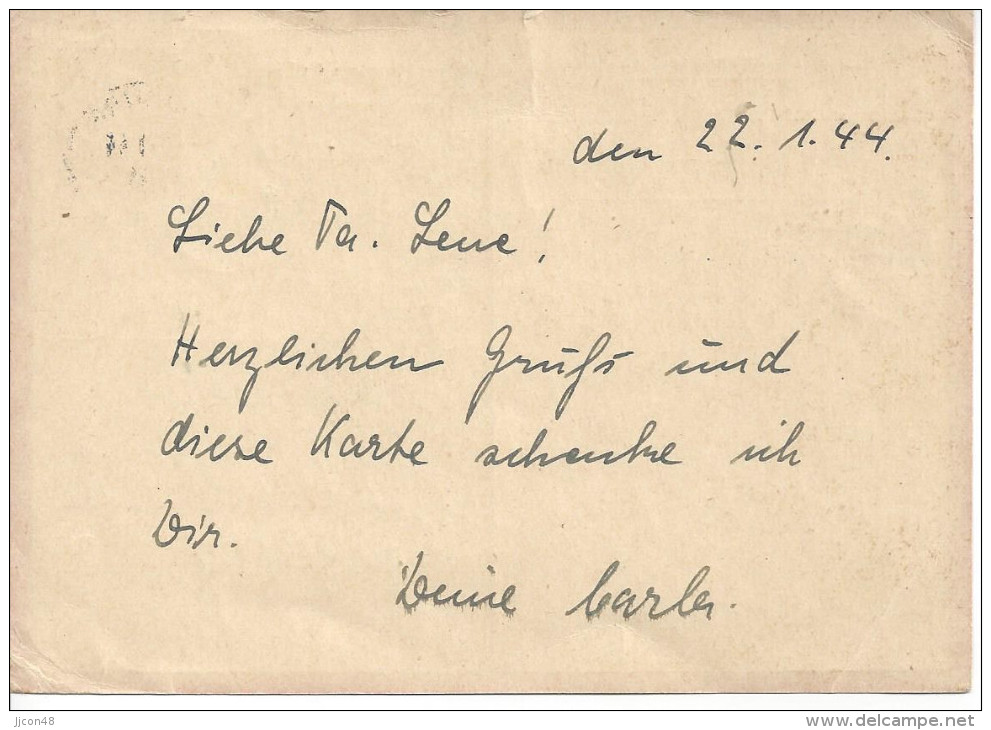 den 22. 1. 44.
Liebe Ta. Lene!
Herzlichen Gruß und
diese Karte schenke ich
Dir.
Deine Carla.
jjcon48
www.delcampe.net